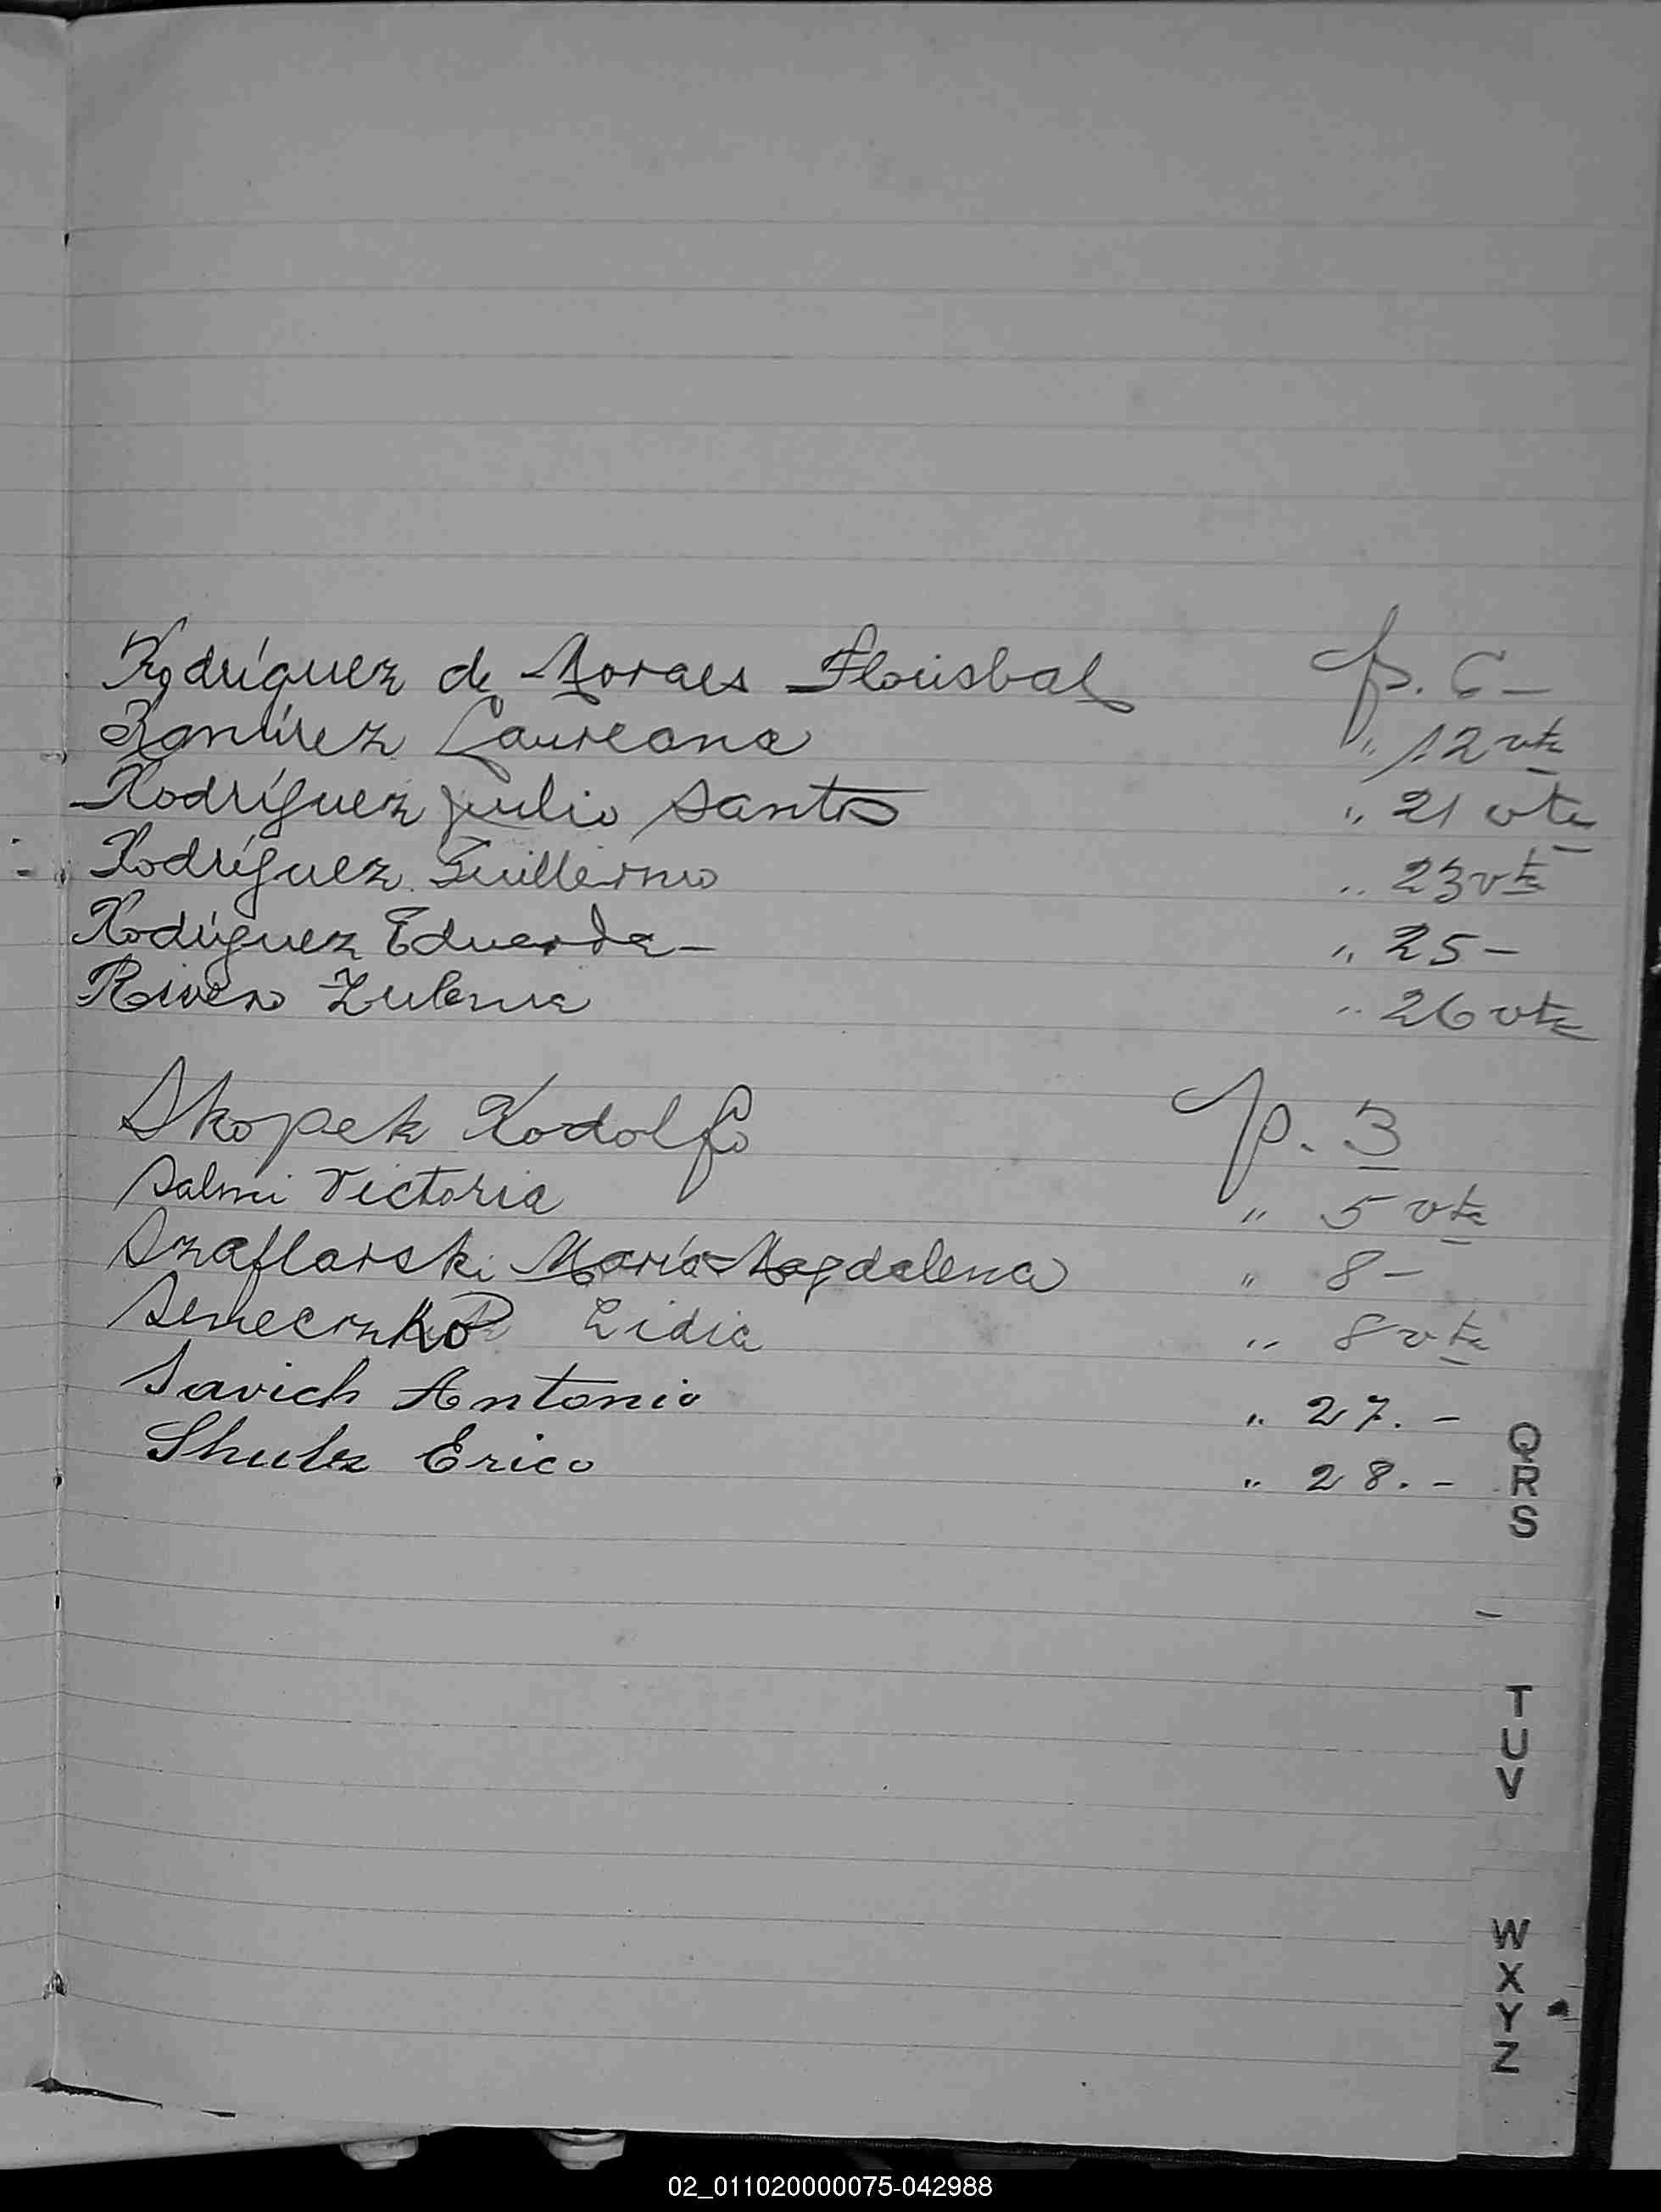 Rodríguez de Moraes Florisbal p. 6 -
Ramírez Laureana " 12 vta
Rodríguez Julio Santos " 21 vta
Rodríguez Guillermo " 23 vta
Rodríguez Eduarda - " 25 -
Rivero Zulema " 26 vta
Skopek Rodolfo p. 3
Salmi Victoria " 5 vta
Szaflarski María Magdalena " 8 -
Semeczko Lidia " 8 vta
Savich Antonio " 27. -
Shulz Erico " 28. -
Q
R
S
T
U
V
W
X
Y
Z
02_011020000075-042988